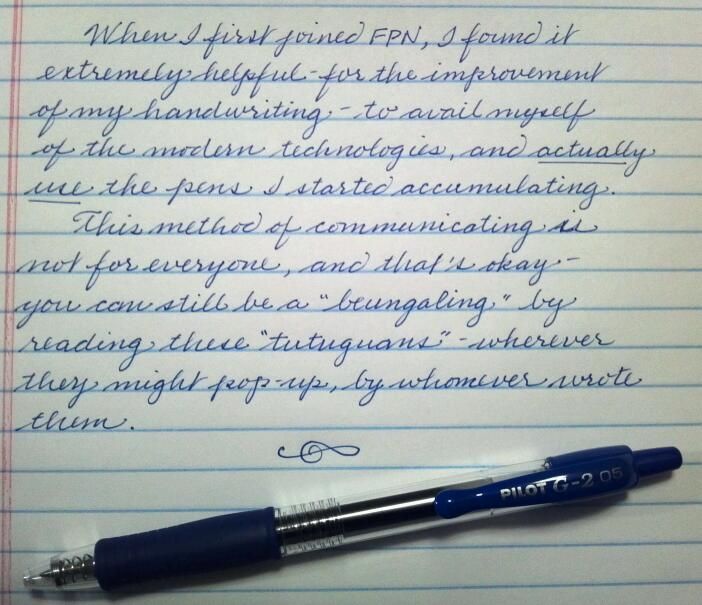 When I first joined FPN, I found it
extremely helpful - for the improvement
of my handwriting - to avail myself
of the modern technologies, and actually
use the pens I started accumulating.
This method of communicating is
not for everyone, and that's okay -
you can still be a "beungaling" by
reading these "tutuguans" - wherever
they might pop-up, by whomever wrote
them.
PILOT G-2 05